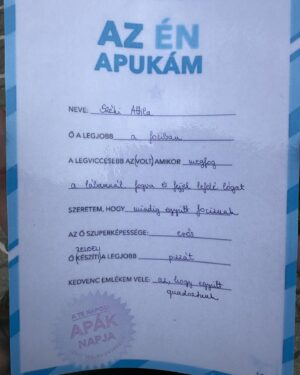 AZ ÉN
APUKÁM
NEVE: Attila
Ő A LEGJOBB a fociban
A LEGVICCESEBB AZ(VOLT) AMIKOR megfog
a lábamnál fogva és fejjel lefelé lógat
SZERETEM, HOGY mindig együtt focizunk
AZ Ő SZUPERKÉPESSÉGE: erős
Ő (KÉSZÍTI) A LEGJOBB pizzát
KEDVENC EMLÉKEM VELE: az, hogy együtt
quadoztunk
A TE NAPOD!
APÁK
NAPJA